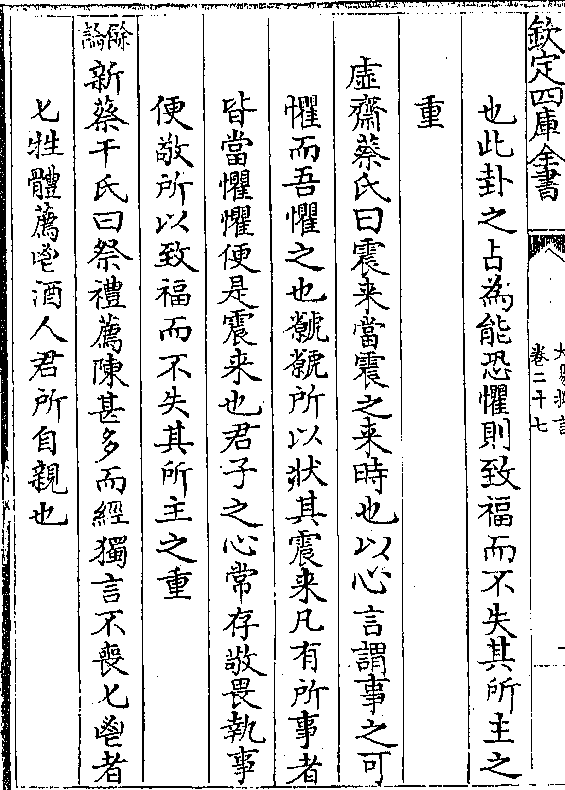 欽定四庫全書
卷二十七
也此卦之占為能恐懼則致福而不失其所主之
重
虛齋蔡氏曰震来當震之来時也以心言謂事之可
懼而吾懼之也虩虩所以狀其震来凡有所事者
皆當懼懼便是震来也君子之心常存敬畏執事
便敬所以致福而不失其所主之重
餘論
新蔡干氏曰祭禮薦陳甚多而經獨言不喪匕鬯者
匕牲體薦鬯酒人君所自親也